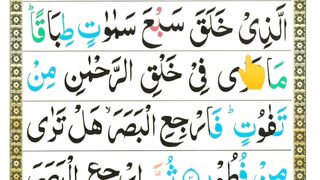 الَّذِیْ خَلَقَ سَبْعَ سَمٰوٰتٍ طِبَاقًا ؕ
مَا تَرٰی فِیْ خَلْقِ الرَّحْمٰنِ مِنْ
تَفٰوُتٍ ؕ فَارْجِعِ الْبَصَرَ ۙ هَلْ تَرٰی
مِنْ فُطُوْرٍ ثُمَّ ارْجِعِ الْبَصَرَ